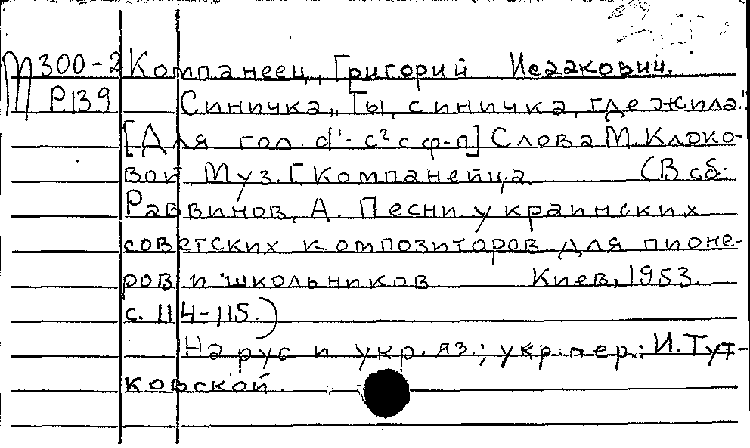 М 300-2 Компанеец, Григорий Исаакович.
Р139 Синичка „Ты, синичка, где жила."
[Для гол. d¹-c² с ф-п] Слова М. Клоко-
вой Муз. Г. Компанейца (В сб:
Раввинов, А. Песни украинских
советских композиторов для пионе-
ров и школьников Киев, 1953.
с. 114-115.)
На рус и укр. яз.; укр. пер.: И. Тут-
ковской.